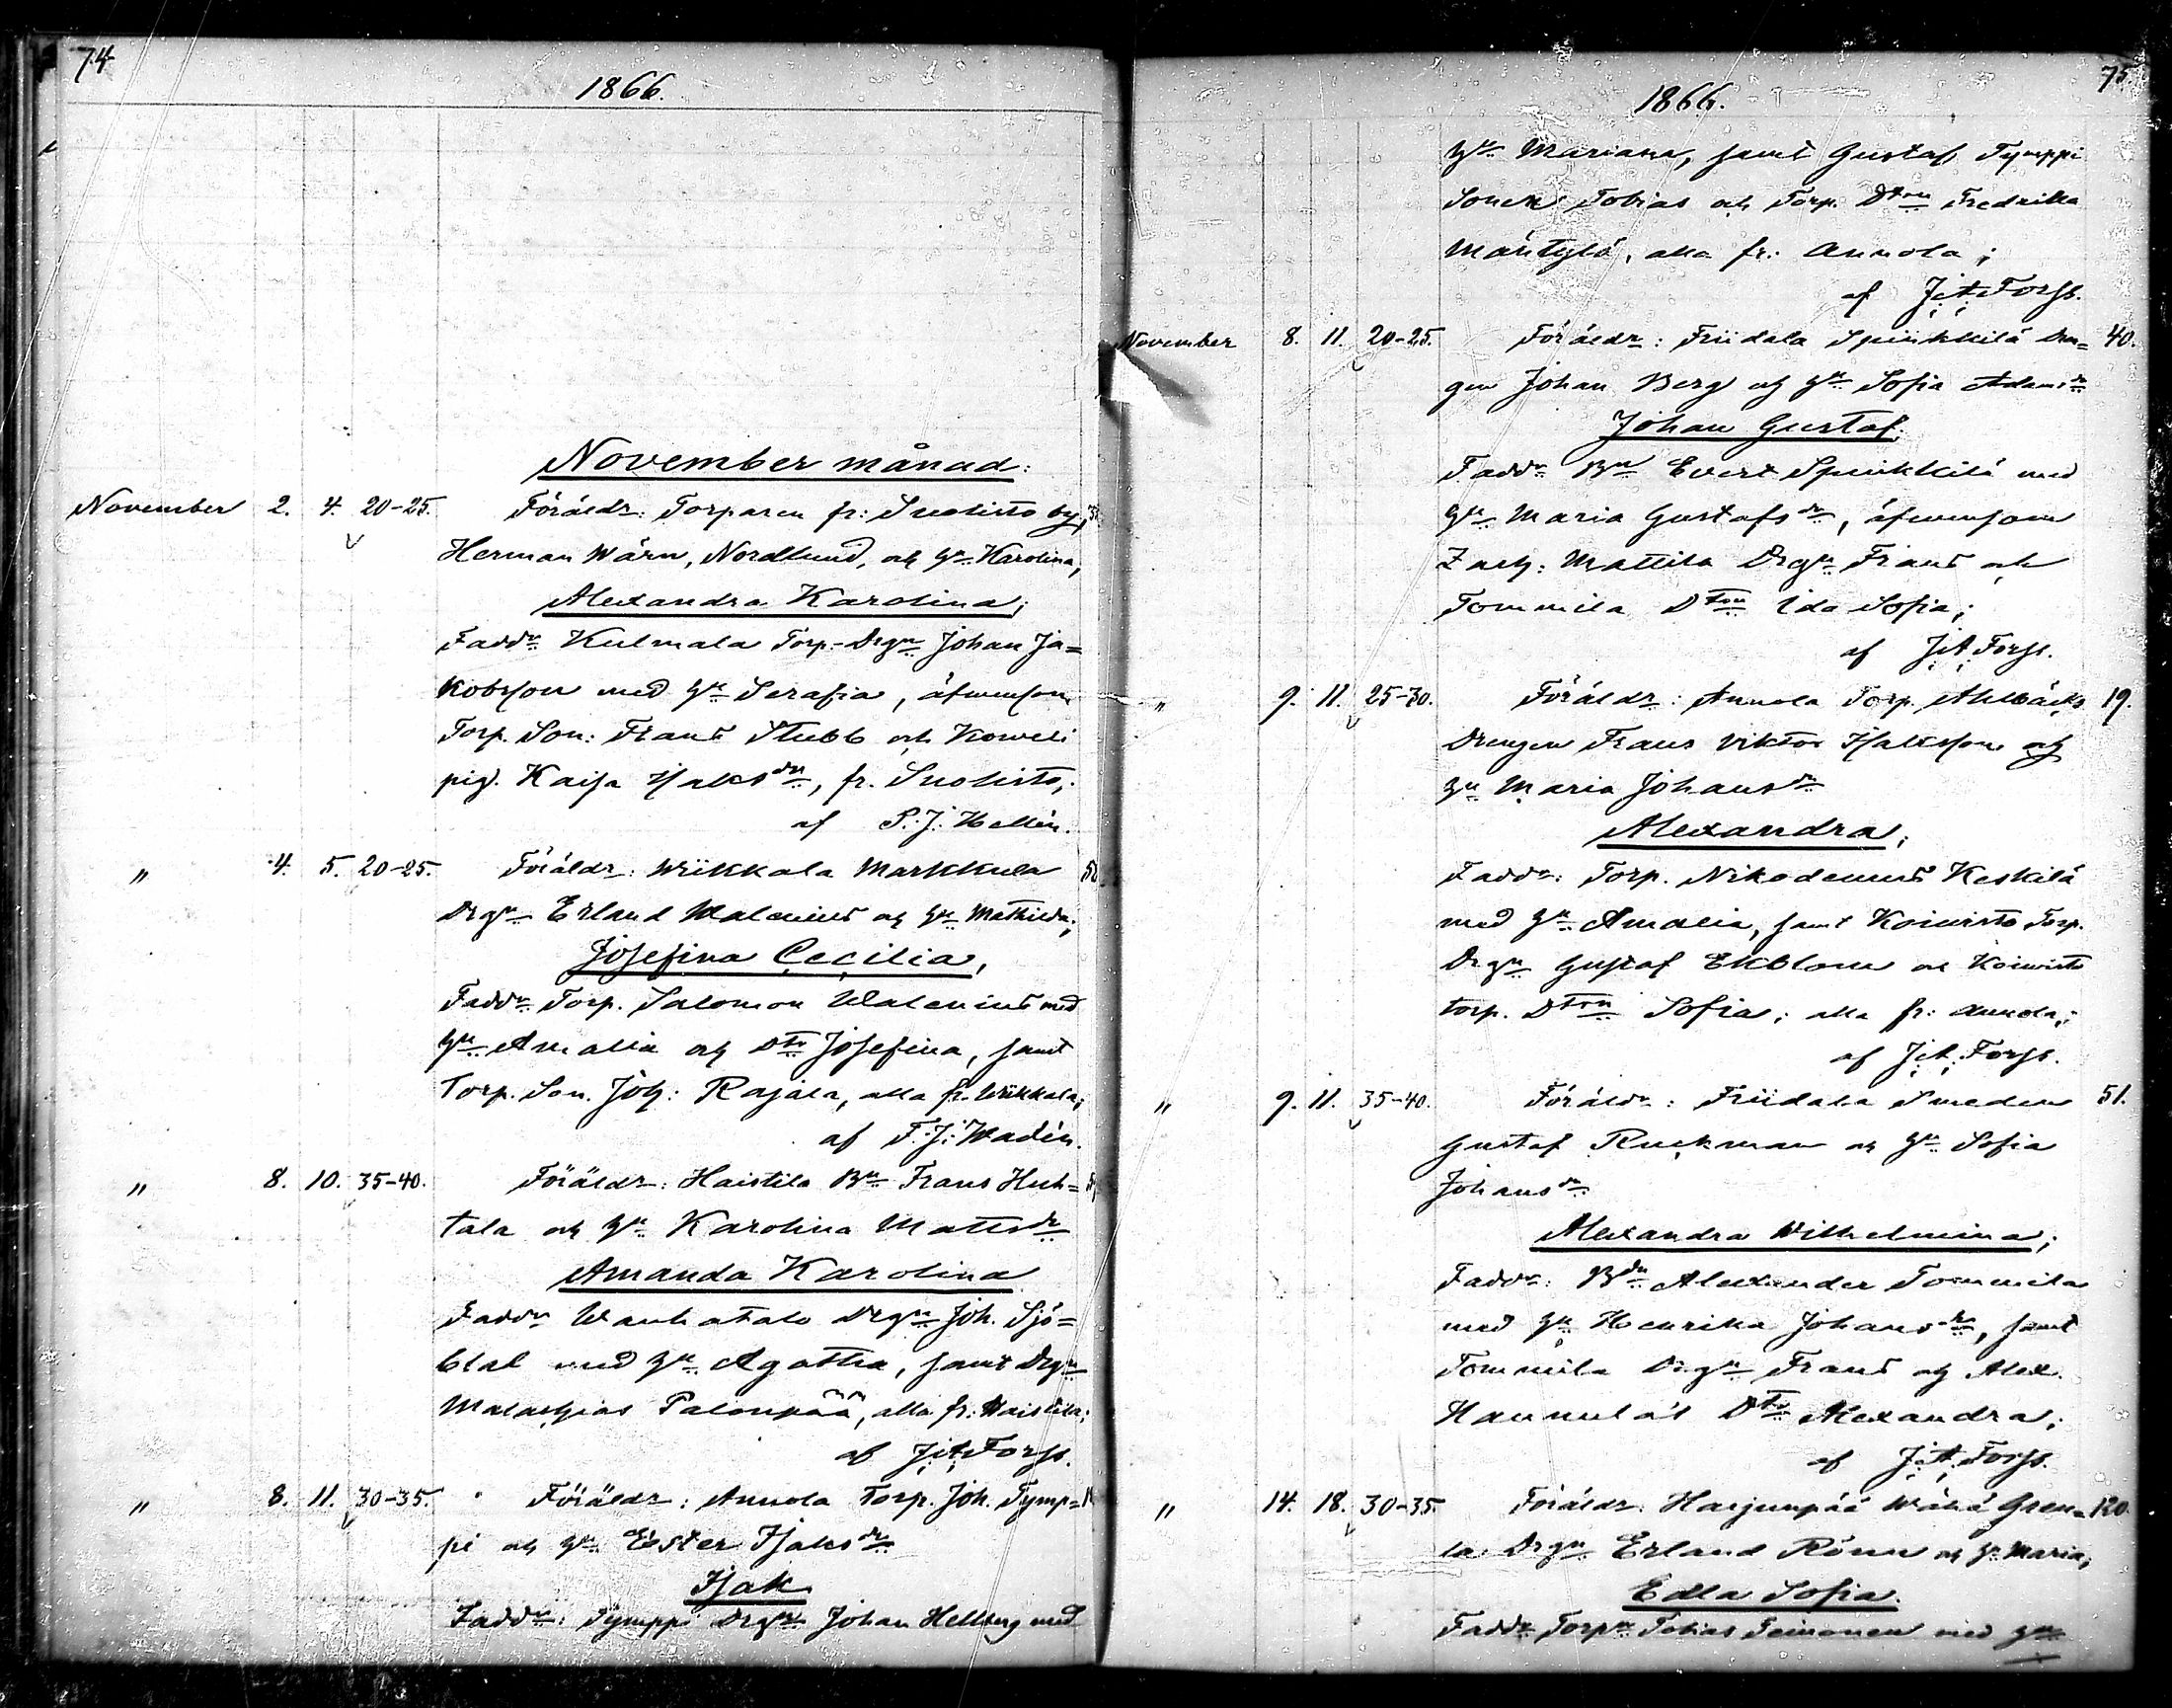 74
1866.
November månad:
November 2. 4. 20-25. Föräldr: Torparen fr: Suolisto by,
Herman Wärn, Nordlund, och hu Karolina,
Alexandra Karolina;
Faddr Kulmala Torp.-Drgn Johan Ja=
kobsson med hu Serafia, äfvensom
Torp. Son: Frans Stubb och
pig. Kaisa Isaksdr, fr. Suolisto;
af P. J. Hellén.
" 4. 5. 20-25. Föräldr: Wiikkala Markkula
Drgn Erland Walenius och hu Mathilda;
Josefina Cecilia,
Faddr Torp. Salomon Walenius med
hu Amalia och Dtr Josefina, samt
Torp. Son. Joh: Rajala, alla fr. Wiikkala;
af F. J. Wadén.
" 8. 10. 35-40. Föräldr: Haistila Bn Frans Huh=
tala och hu Karolina Mattsdr
Amanda Karolina
Faddr Wanhatalo Drgn Joh. Sjö=
blad med hu Agatha, samt Drgn
Malachias Palonpää, alla fr: Haistila;
af J. A. Forss.
" 8. 11. 30-35. Föräldr: Annola Torp. Joh. Tymp=
pi och hu Ester Isaksdr
Isak
Faddr: Tymppi Drgn Johan Hellberg med
75.
1866.
hu Mariana, samt Gustaf Tymppi
Sonen Tobias och Torp. Dtren Fredrika
Mäntylä, alla fr: Annola;
af J. A. Forss.
November 8. 11. 20-25. Föräldr: Friidala Spiikkilä Drän= 40.
gen Johan Berg och hu Sofia Adamsdr
Johan Gustaf.
Faddr Bn Evert Spiikkilä med
hu Maria Gustafsdr, äfvensom
Zach: Mattila Drgn Frans och
Tommila Dtren Ida Sofia;
af J. A. Forss.
" 9. 11. 25-30. Föräldr: Annola Torp. Ahlbäcks 19.
Drengen Frans Viktor Isaksson och
hu Maria Johansdr
Alexandra;
Faddr: Torp. Nikodemus Keskilä
med hu Amalia, samt Koivisto Torp.
Drgn Gustaf Ekblom och Koivisto
torp. Dtren Sofia; alla fr: Annola;
af J. A. Forss.
" 9. 11. 35-40. Föräldr: Friidala Smeden 51.
Gustaf Ruckman och hu Sofia
Johansdr
Alexandra Wilhelmina;
Faddr: Bdn Alexander Tommila
med hu Henrika Johansdr, samt
Tommila Drgn Frans och Alex.
Hannula's Dtr Alexandra;
af J. A. Forss.
" 14. 18. 30-35. Föräldr: Harjunpää Wähä Gren= 120.
la Drgn Erland Rönn och hu Maria;
Edla Sofia.
Faddr Torpn Tobias Teinonen med hu